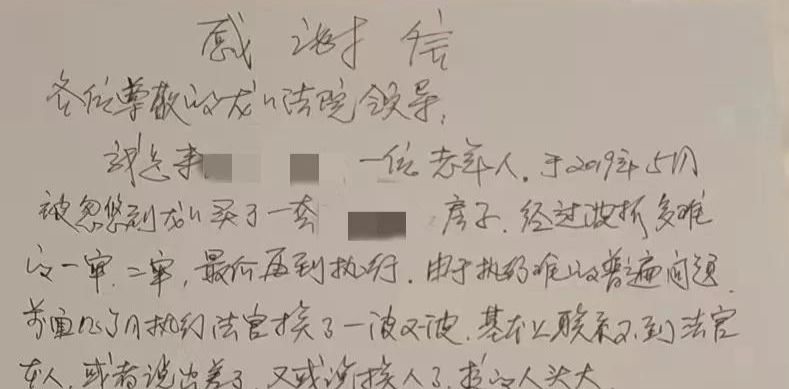 感谢信
各位尊敬的龙川法院领导,
我是来 一位老年人,于2019年5月
被忽悠到龙川买了一套 房子,经过波折多难
的一审、二审,最后再到执行,由于执行难的普遍问题,
前面几个月执行法官换了一波又一波,基本上联系不到法官
本人,或者说出差了,又或说换人了,搞的人头大